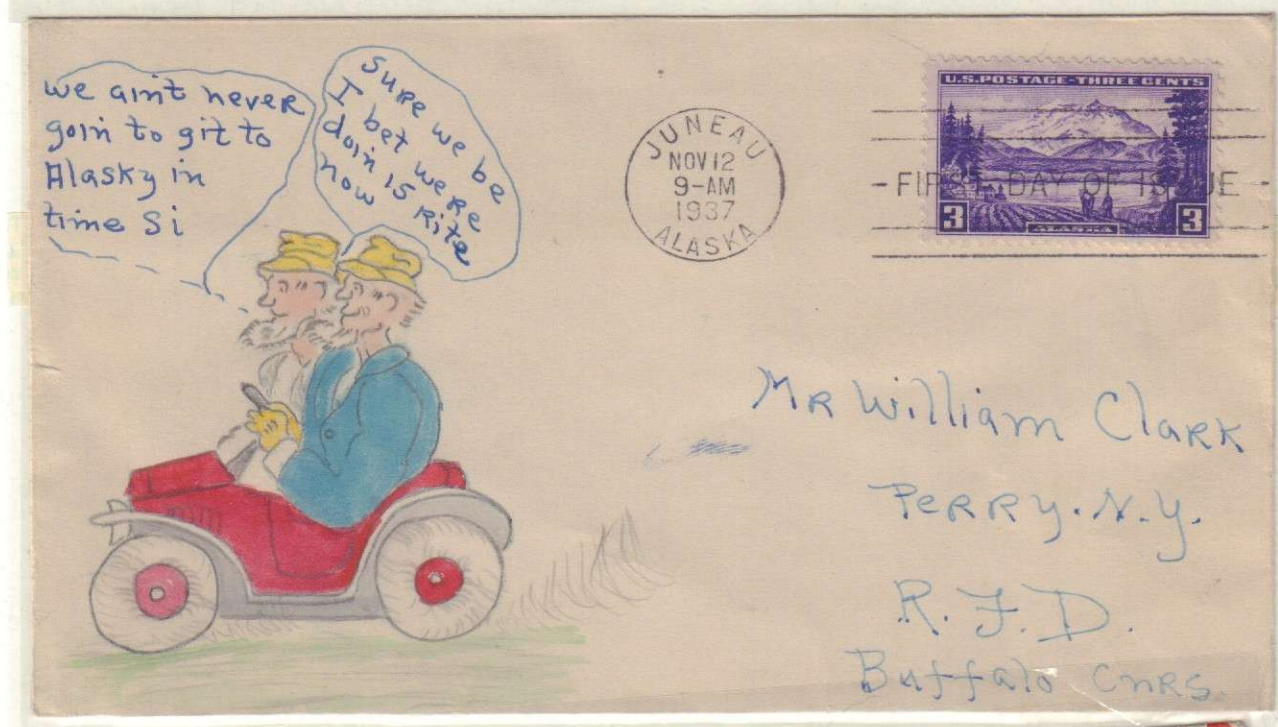 we aint never
goin to git to
Alasky in
time Si
Sure we be
I bet were
doin 15 rite
now
JUNEAU
NOV 12
9-AM
1937
ALASKA
U.S. POSTAGE-THREE CENTS
FIRST DAY OF ISSUE
3 ALASKA 3
Mr William Clark
Perry. N.Y.
R.F.D.
Buffalo Cnrs.